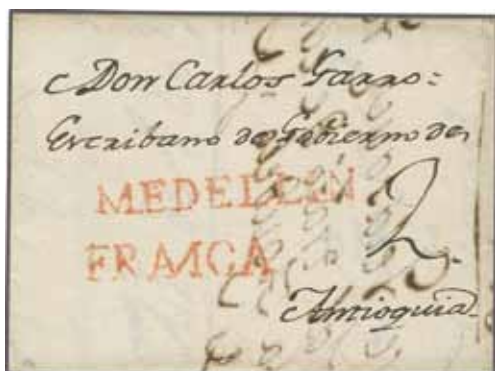 Don Carlos Garro=
Escribano de Gobierno de
MEDELLIN
FRANCA
2
Antioquia